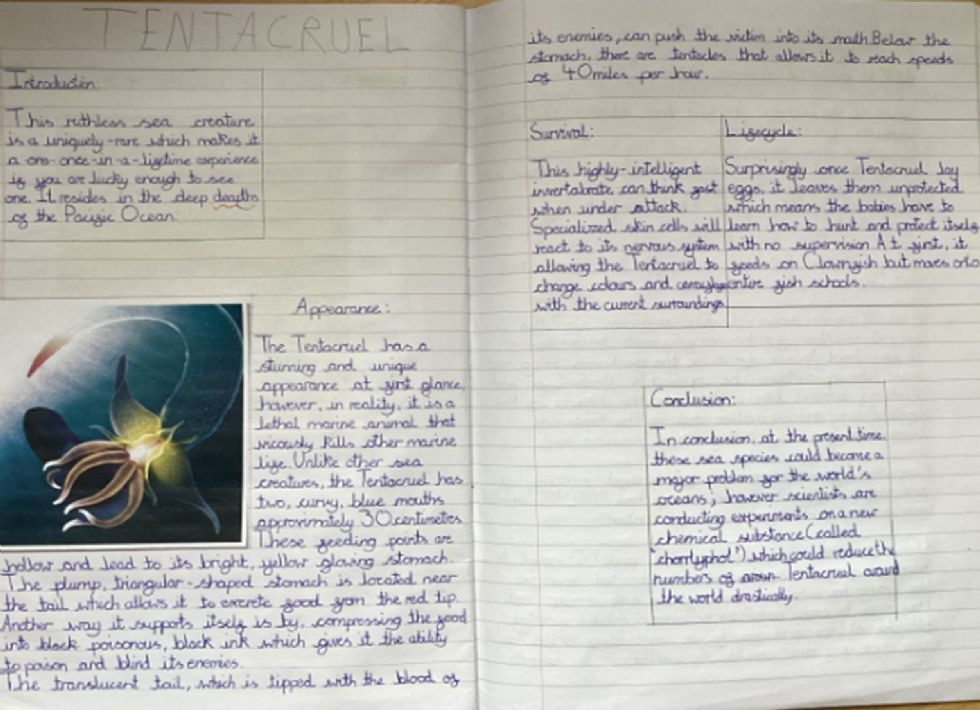 TENTACRUEL
Introduction:
This ruthless sea creature
is a uniquely-rare which makes it
a one-once-in-a-lifetime experience
if you are lucky enough to see
one. It resides in the deep
of the Pacific Ocean.
Appearance:
The Tentacruel has a
stunning and unique
appearance at first glance,
however, in reality, it is a
lethal marine animal that
viciously kills other marine
life. Unlike other sea
creatures, the Tentacruel has
two, curvy, blue mouths
approximately 30 centimetres
These feeding points are
hollow and lead to its bright, yellow glowing stomach.
The plump, triangular-shaped stomach is located near
the tail which allows it to excrete food from the red tip.
Another way it supports itself is by, compressing the food
into black poisonous, black ink which gives it the ability
to poison and blind its enemies.
The translucent tail, which is tipped with the blood of
its enemies, can push the victim into its math. Below the
stomach, there are tentacles that allows it to reach speeds
of 40 miles per hour.
Survival:
This highly-intelligent
invertabrate can think fast
when under attack.
Specialized skin cells will
react to its nervous system
allowing the Tentacruel to
change colours and
with the current surroundings
Lifecycle:
Surprisingly once Tentacruel lay
eggs, it leaves them unprotected
which means the babies have to
learn how to hunt and protect itself
with no supervision. At first, it
feeds on Clownfish but moves onto
entire fish schools.
Conclusion:
In conclusion, at the present time,
these sea species could become a
major problem for the world's
oceans; however scientists are
conducting experiments on a new
chemical substance (called
which could reduce the
numbers of Tentacruel around
the world drastically.